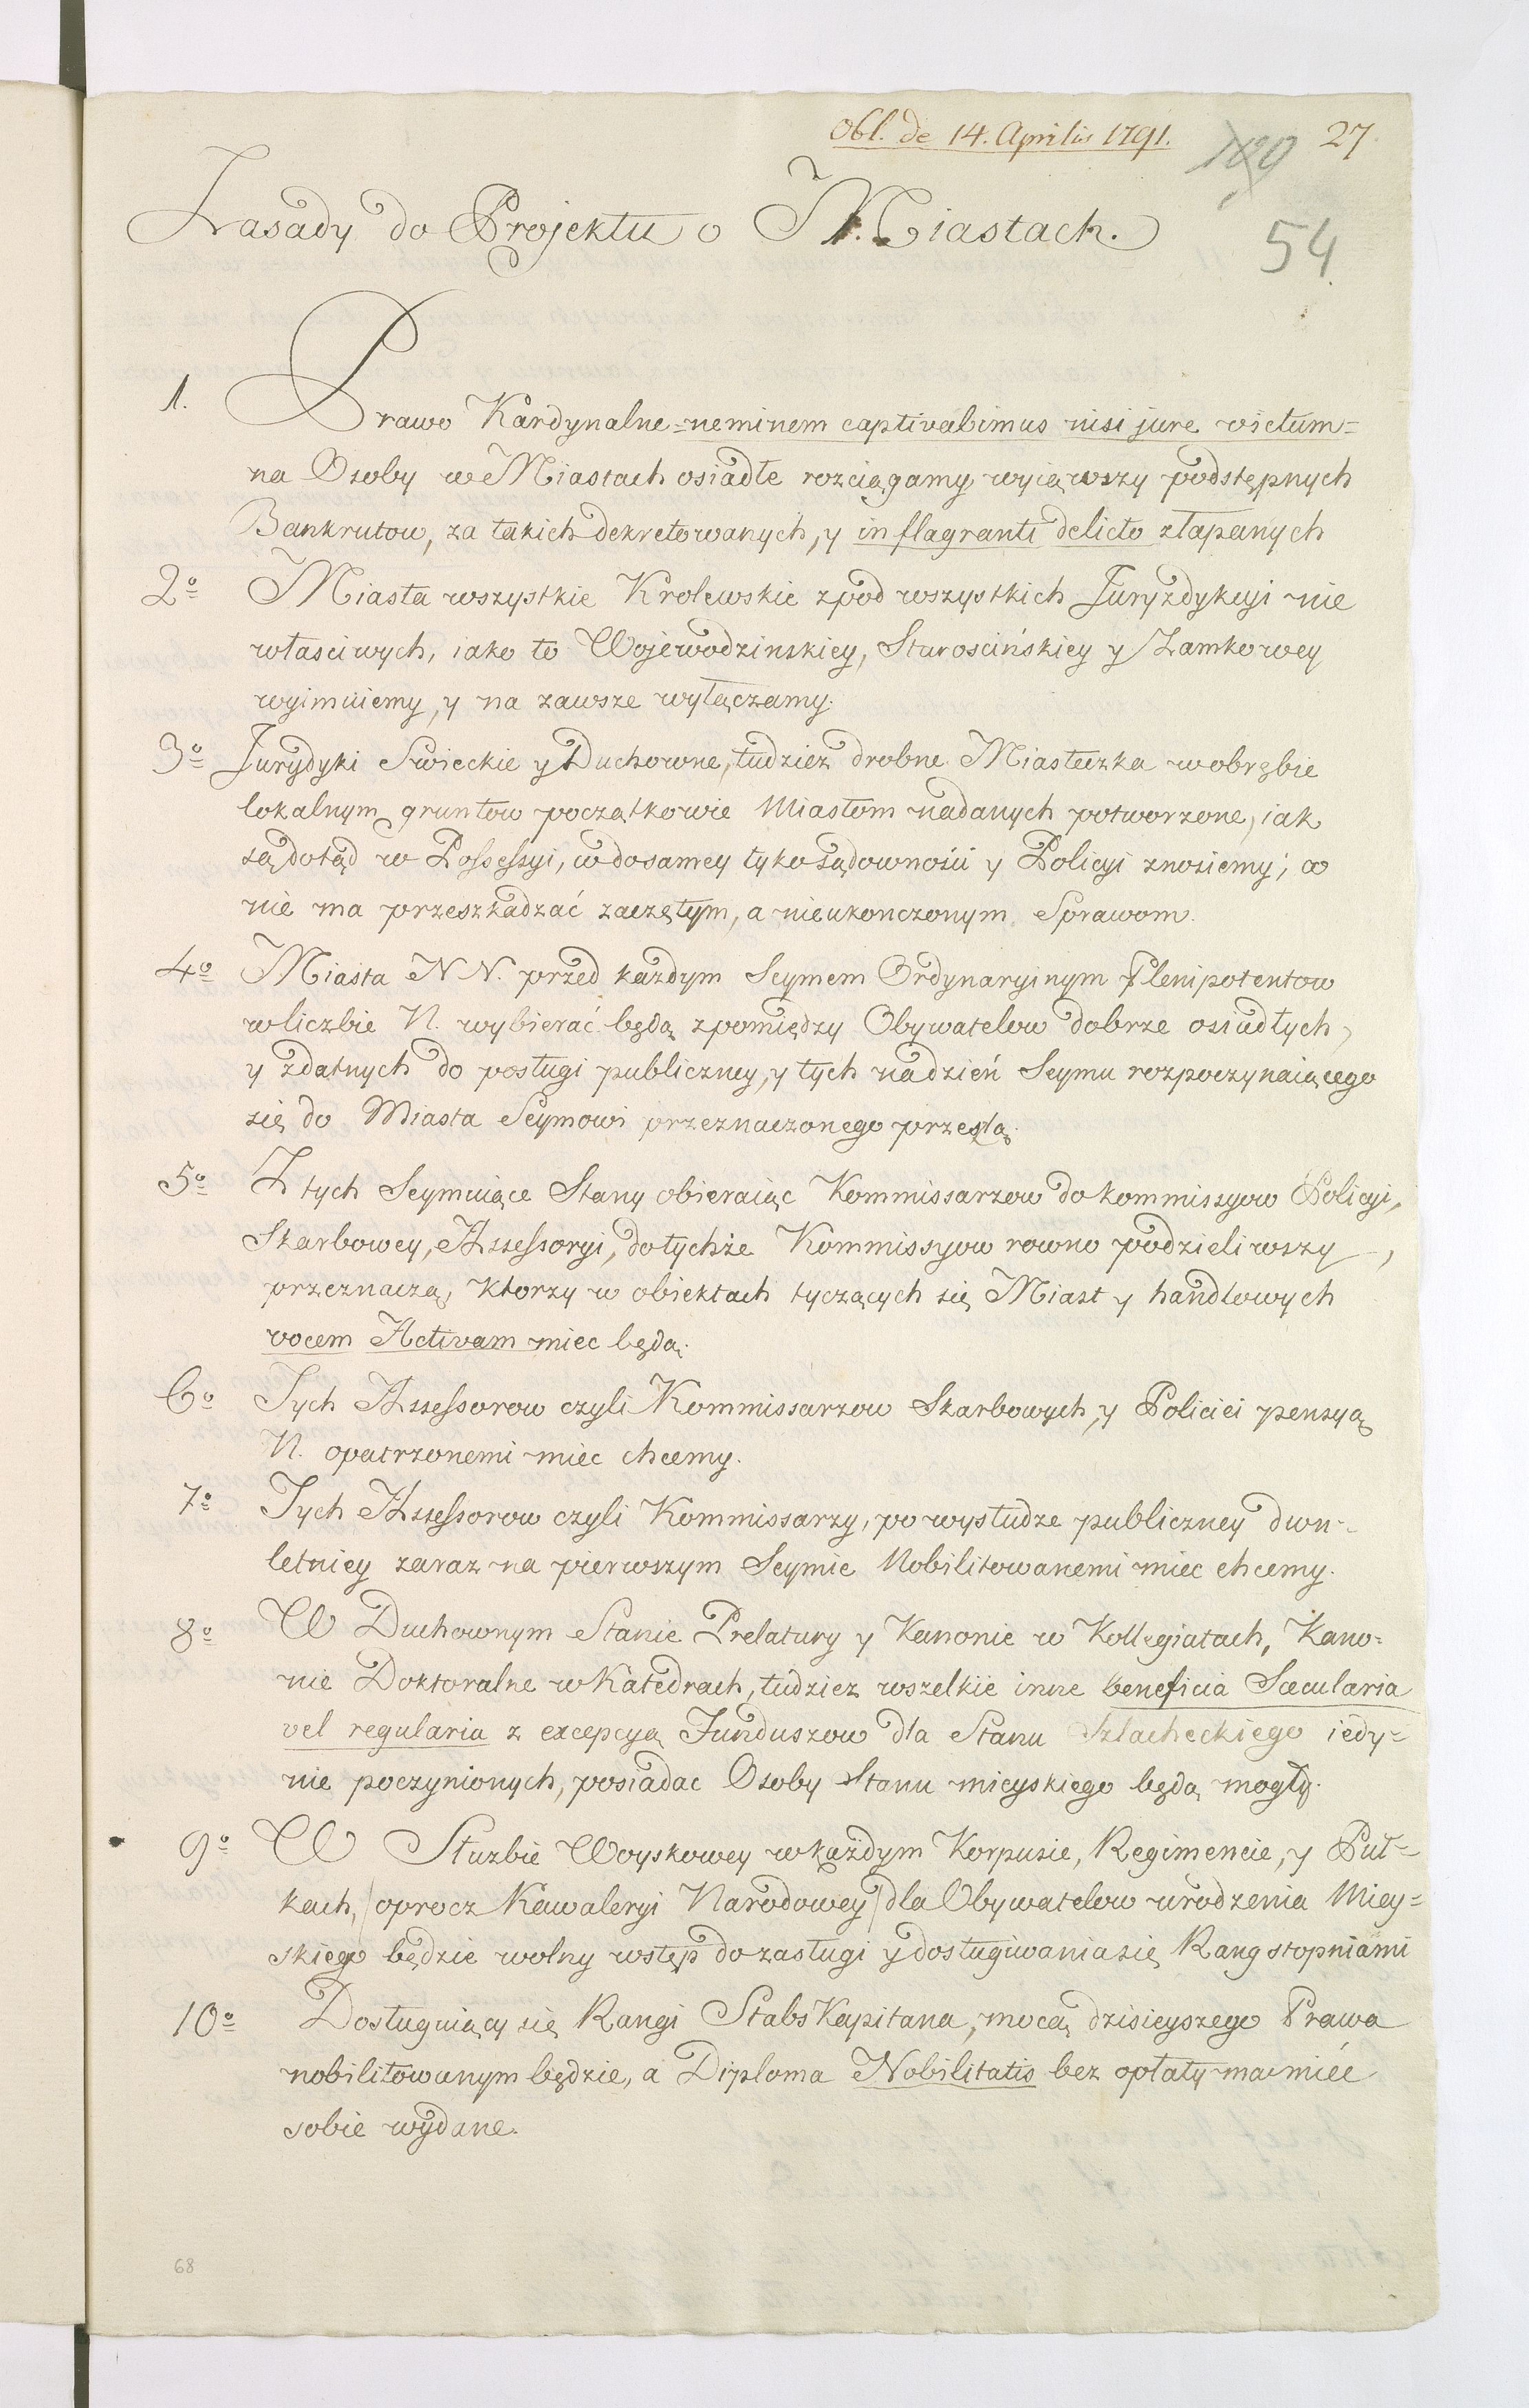 Obl. de 14. Aprilis 1791.
100 27.
54.
Zasady do Projektu o Miastach.
1. Prawo Kardynalne=neminem captivabimus nisi jure victum=
na Osoby w Miastach osiadłe rozciągamy wyiąwszy podstępnych
Bankrutow, za takich dekretowanych, y in flagranti delicto złapanych
2o Miasta wszystkie Krolewskie zpod wszystkich Juryzdykcyi nie
właściwych, iako to Wojewodzinskiey, Starościńskiey y Zamkowey
wyimuiemy, y na zawsze wyłączamy.
3o Jurydyki Swieckie y Duchowne, tudzież drobne Miasteczka w obrębie
lokalnym gruntow początkowie Miastom nadanych potworzone, iak
są dotąd w Possessyi, w do samey tyko sądowności y Policyi znosiemy; co
nie ma przeszkadzać zaczętym, a nieukonczonym Sprawom.
4o Miasta N N. przed każdym Seymem Ordynaryinym Plenipotentow
w liczbie N. wybierać będą zpomiędzy Obywatelow dobrze osiadłych,
y zdatnych do posługi publiczney, y tych na dzień Seymu rozpoczynaiącego
się do Miasta Seymowi przeznaczonego przeszlą.
5o Z tych Seymuiące Stany obieraiąc Kommissarzow do kommissyow Policyi,
Skarbowey, Assessoryi, do tychże Kommissyow rowno podzieliwszy,
przeznaczą, ktorzy w obiektach tyczących się Miast y handlowych
vocem Activam miec będą.
6o Tych Assessorow czyli Kommissarzow Skarbowych, y Policiei pensyą
N. opatrzonemi miec chcemy.
7o Tych Assessorow czyli Kommissarzy, po wysłudze publiczney dwu-
letniey zaraz na pierwszym Seymie Nobilitowanemi miec chcemy.
8o W Duchownym Stanie Prelatury y Kanonie w Kollegiatach, Kano=
nie Doktoralne w Katedrach, tudziez wszelkie inne beneficia Sæcularia
vel regularia z excepcyą Funduszow dla Stanu Szlacheckiego iedy=
nie poczynionych, posiadac Osoby Stanu mieyskiego będą mogły.
9o W Służbie Woyskowey w każdym Korpusie, Regimencie, y Puł=
kach, /oprocz Kawaleryi Narodowey/ dla Obywatelow urodzenia Miey=
skiego będzie wolny wstęp do zasługi y dosługiwania się Rang stopniami
10o Dosługuiący się Rangi StabsKapitana, mocą dzisieyszego Prawa
nobilitowanym będzie, a Diploma Nobilitatis bez opłaty ma mieć
sobie wydane.
68